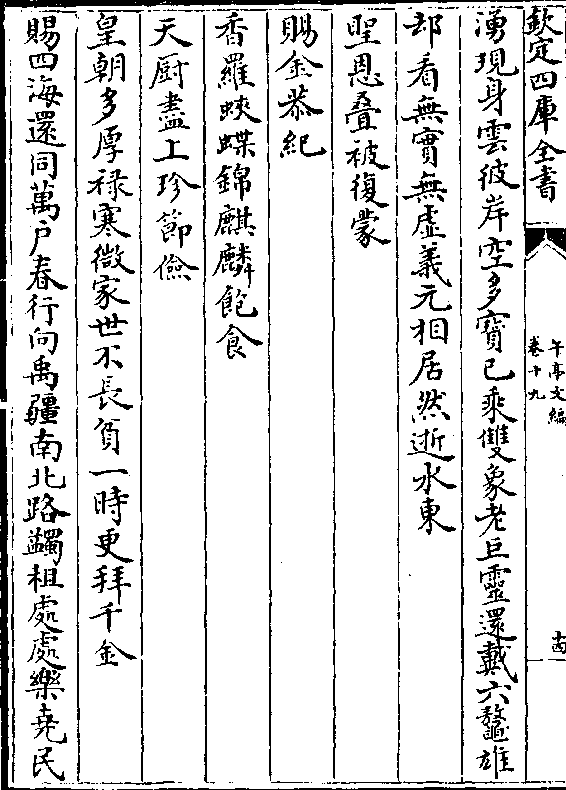 欽定四庫全書
午亭文編
卷十九
十四
湧現身雲彼岸空多寶已乘雙象老巨靈還戴六鼇雄
却看無實無虛義元相居然逝水東
聖恩叠被復蒙
賜金恭紀
香羅蛺蝶錦麒麟飽食
天厨盡上珍節儉
皇朝多厚禄寒微家世不長貧一時更拜千金
賜四海還同萬户春行向禹疆南北路蠲租處處樂堯民